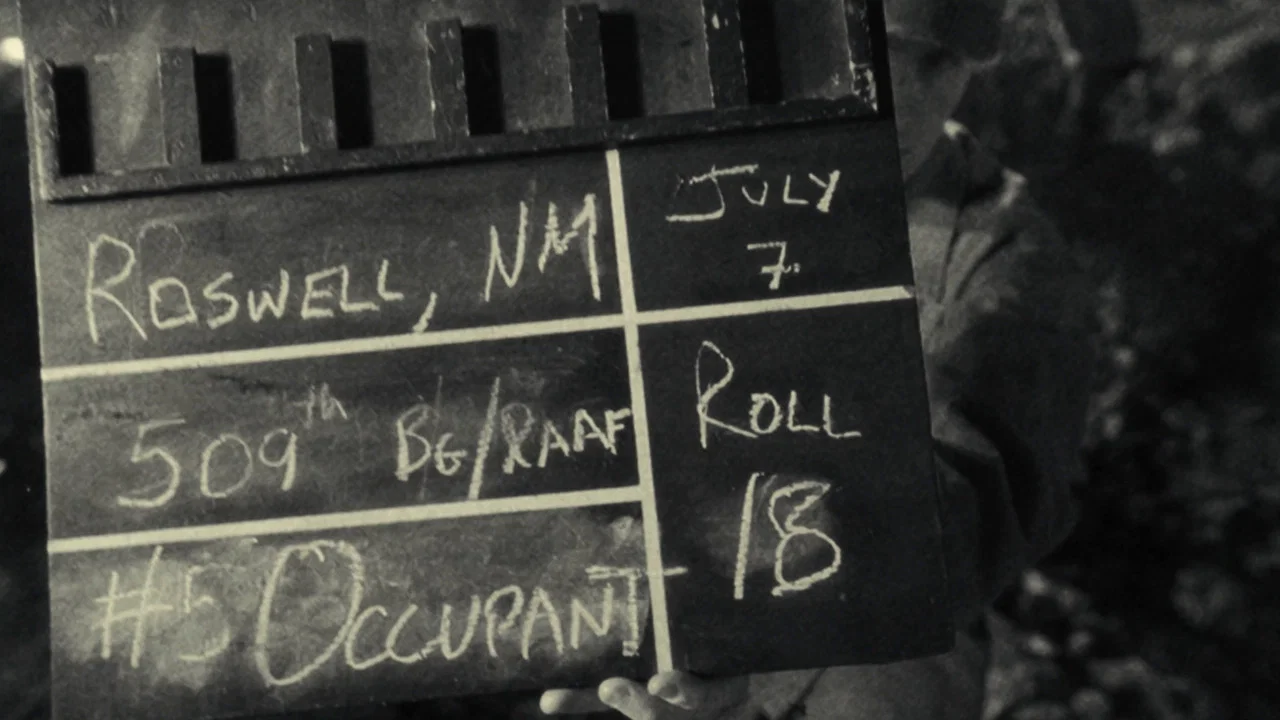 ROSWELL, NM
JULY
7
509th BG/RAAF
ROLL
18
#5 OCCUPANT